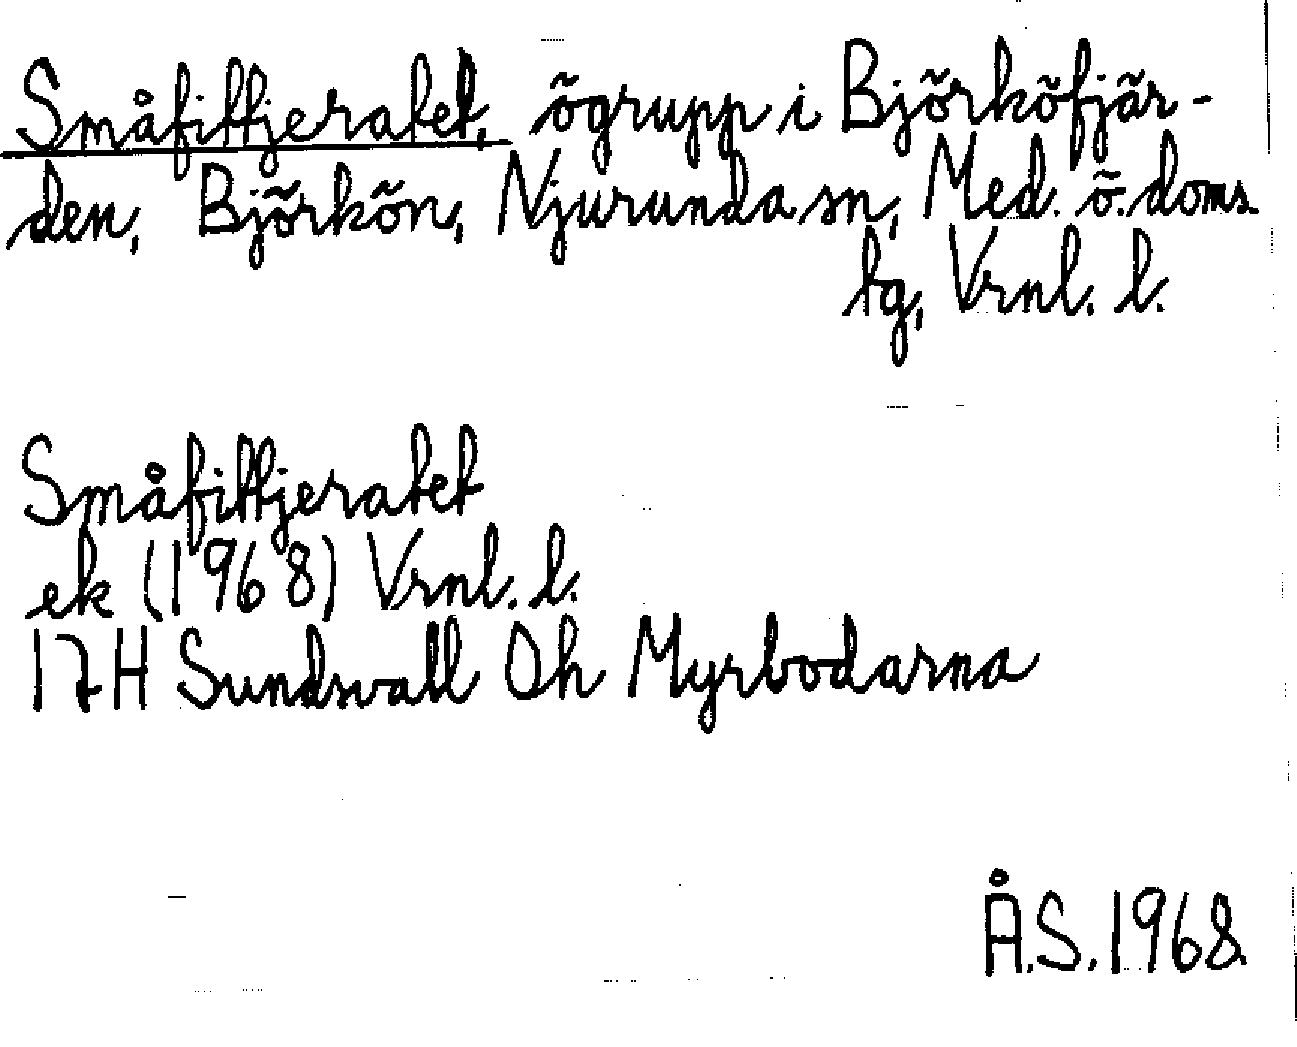 Småfittjeratet, ögrupp i Björköfjär-
den, Björkön, Njurunda sn, Med. ö. doms.
tg, Vrnl. l.
Småfittjeratet
ek (1968) Vrnl. l.
17H Sundsvall Oh Myrbodarna
Å.S. 1968.